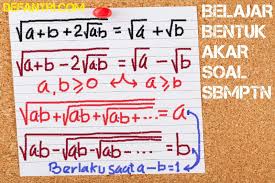 DEFANTRI.COM
√a+b+2√ab = √a + √b
√a+b-2√ab = √a - √b
a, b ≥ 0 ↔ a ≥ b
√ab+√ab+√ab+√ab+... = a
√ab-√ab-√ab-√ab-... = b
Berlaku saat a-b=1
BELAJAR
BENTUK
AKAR
SOAL
SBMPTN